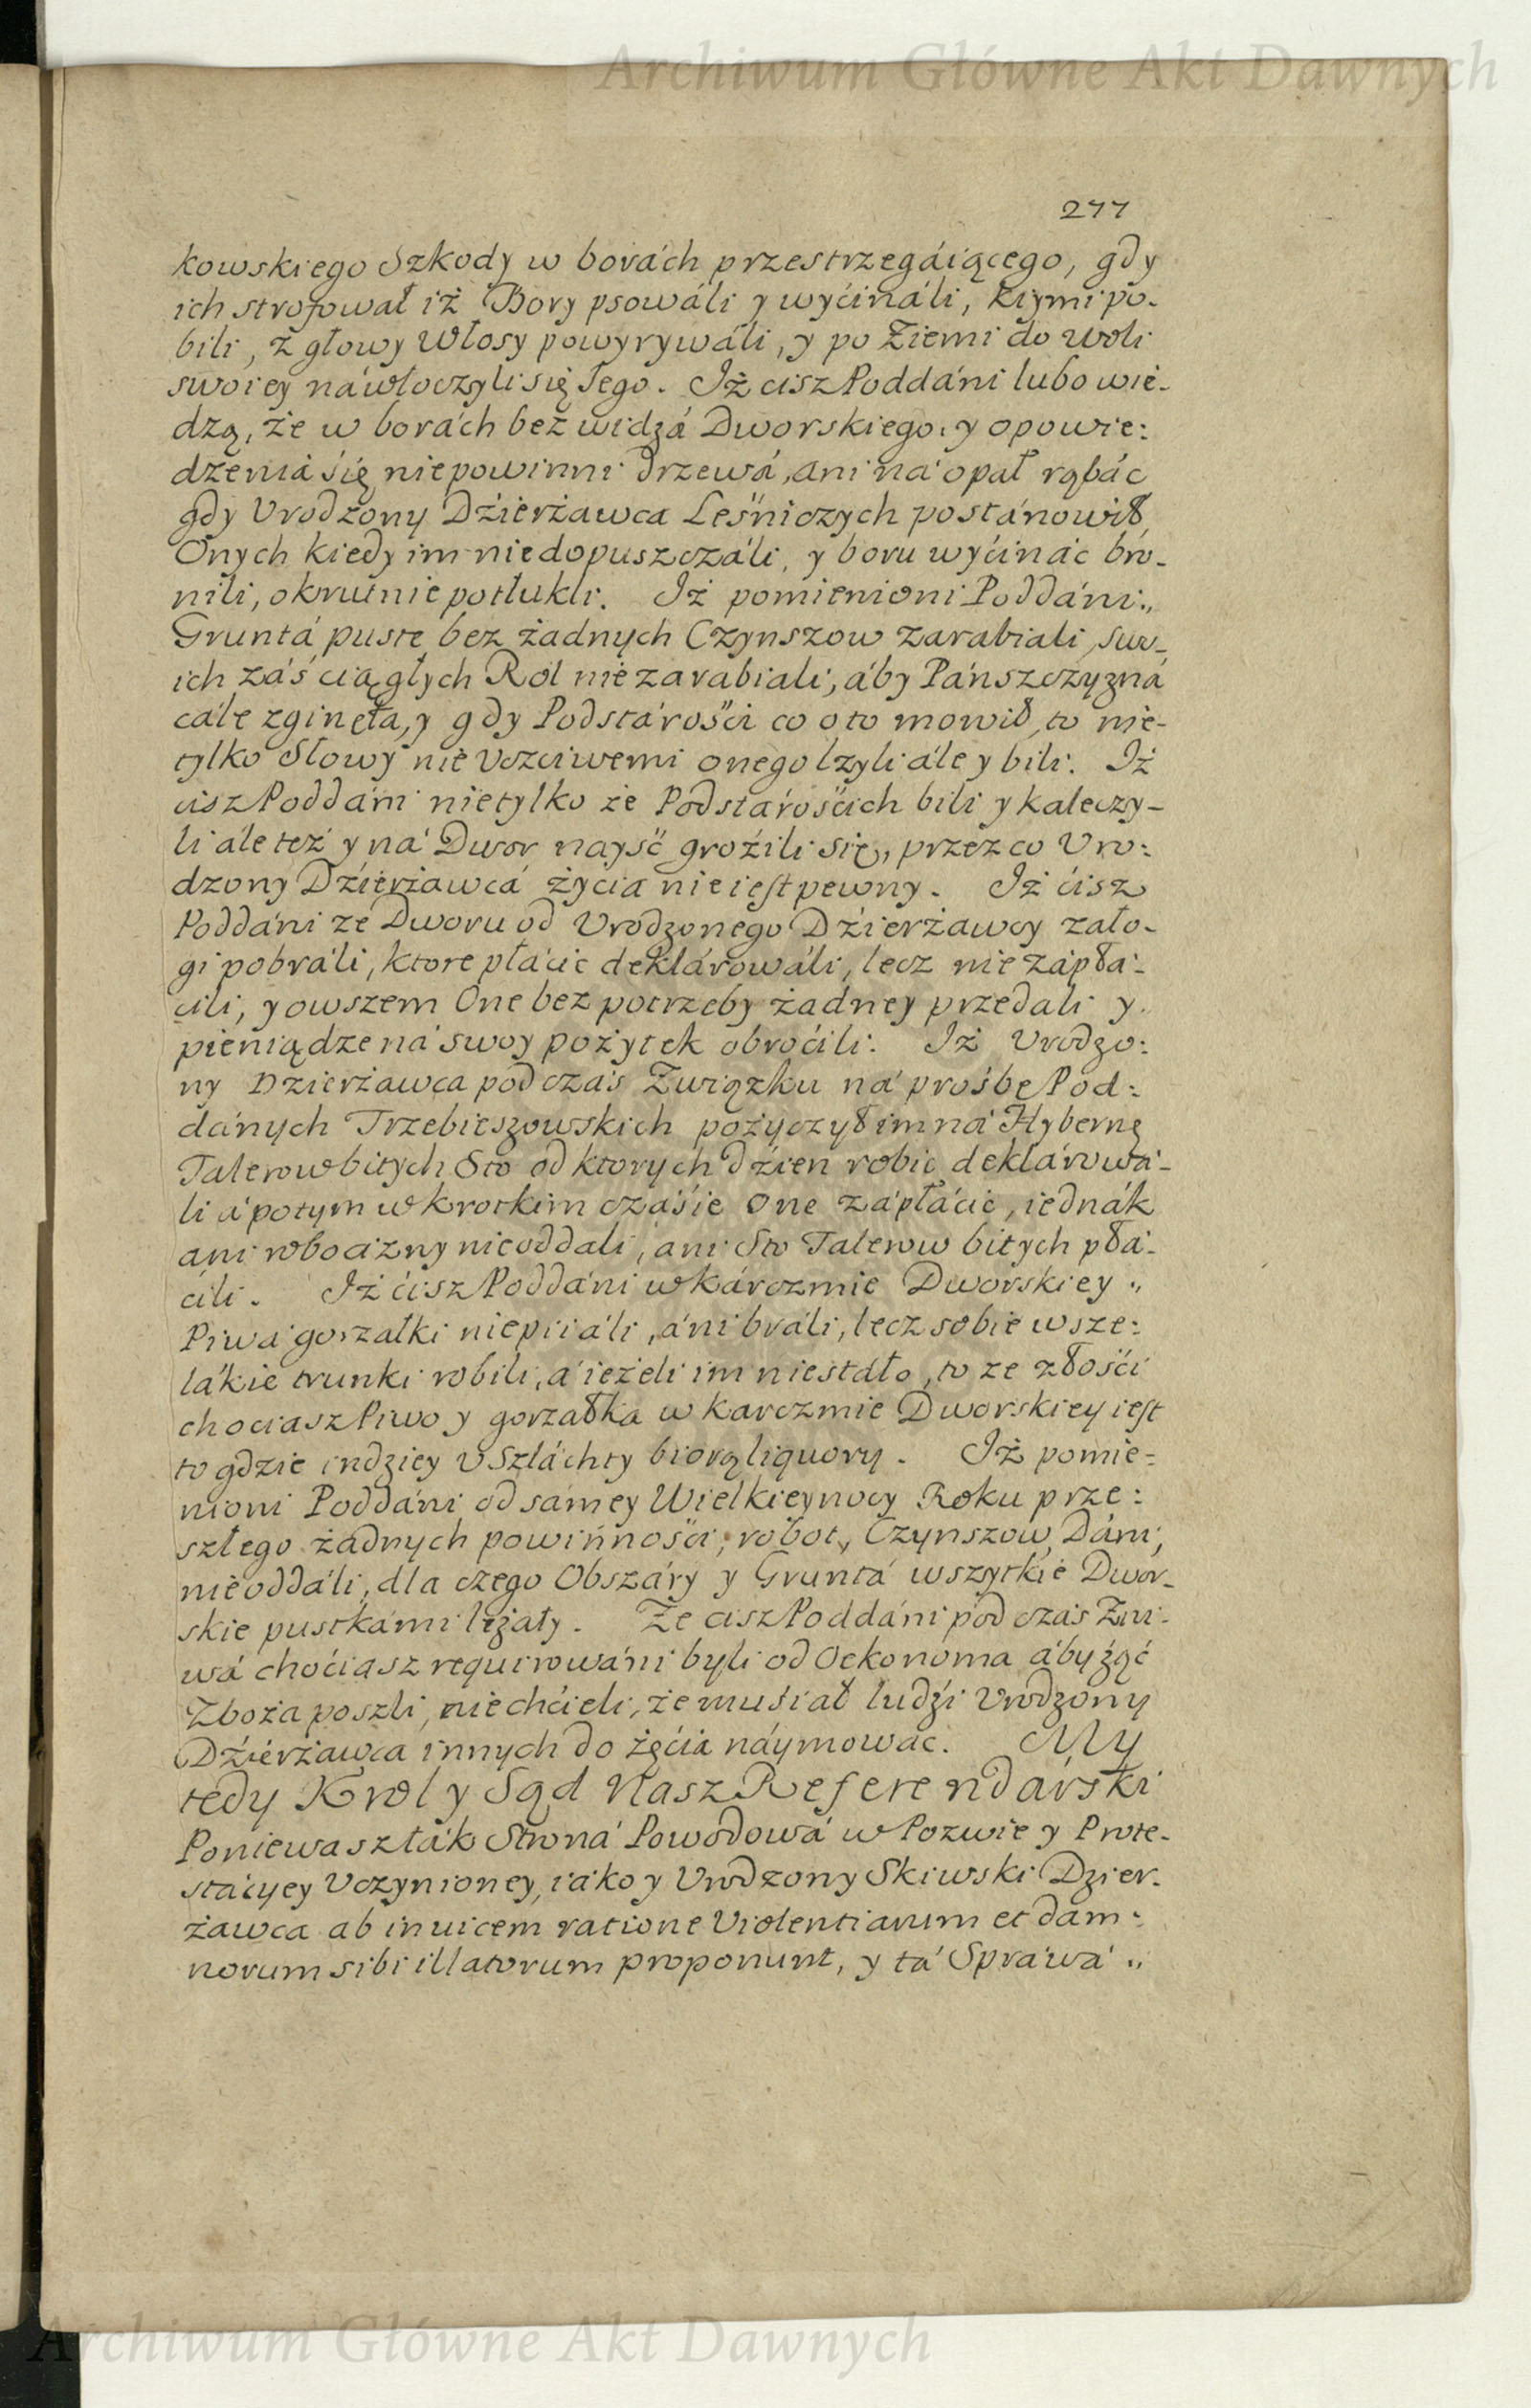 Archiwum Główne Akt Dawnych
277
kowskiego Szkody w borách przestrzegáiącego, gdy
ich strofował iż Bory psowáli y wyćináli, kiymi po-
bili, z głowy Włosy powyrywáli, y po Ziemi do woli
swoiey náwłoczyli się Tego. Iż cisz Poddáni lubo wie-
dzą, że w borách bez widzá Dworskiego, y opowie:
dzenia się niepowinni drzewá, ani ná opał rąbáć
gdy Vrodzony Dzierżawca Leśniczych postánowił,
Onych kiedy im niedopuszczáli, y boru wyćináć bro-
nili, okrutnie potłukli. Iż pomienioni Poddáni„
Gruntá puste bez żadnych Czynszow zarabiali, swo-
ich záś ciągłych Ról niezarabiali, áby Pánszczyzná
cále zginęła, y gdy Podstárośći co o to mowił, to nie-
tylko Słowy nie Vczciwemi onego lzyli ále y bili. Iż
cisz Poddáni nietylko że Podstárośćich bili y kaleczy-
li ále też y ná Dwor nayść grozili się, przez co Vro:
dzony Dzierżawcá życia nie iest pewny. Iż ćisz
Poddáni ze Dworu od Vrodzonego Dzierżawcy zało-
gi pobráli, ktore płácić deklárowáli, lecz nie zápła-
cili, y owszem One bez potrzeby żadney przedali y
pieniądze ná swoy pożytek obroćili. Iż Vrodzo:
ny Dzierżawca podczás Związku ná prośbę Pod:
dánych Trzebieszowskich pożyczył im ná Hybernę
Talerow bitych Sto od ktorych dzien robic deklárowá-
li á potym w krotkim czáśie One zápłácić, iednák
ani robocizny nieoddali, ani Sto Talerow bitych płá-
ćili. Iż ćisz Poddáni w kárczmie Dworskiey „
Piwá gorzałki niepiiáli, áni bráli, lecz sobie wsze:
lákie trunki robili, á ieżeli im niestáło, to ze złośći
chociasz Piwo y gorzałka w karczmie Dworskiey iest
to gdzie indziey v Szláchty biorą liquory. Iż pomie=
nioni Poddáni od sámey Wielkieynocy Roku prze:
szłego żadnych powinnośći, robot, Czynszow, Dáni,
nieoddáli, dla czego Obszáry y Gruntá wszytkie Dwor-
skie pustkámi leżały. Że cisz Poddáni pod czás Żni-
wá choćiasz requirowáni byli od Oekonoma áby żąć
Zboża poszli, niechćieli, że muśiał ludźi Vrodzony
Dzierżawca innych do żęćia náymować. My
tedy Krol y Sąd Nasz Referendárski
Poniewasz ták Stroná Powodowá w Pozwie y Prote-
stácyey Vczynioney, iáko y Vrodzony Skiwski Dzier-
żawca ab inuicem ratione Violentiarum et dam-
norum sibi illatorum proponunt, y tá Spráwá „
Archiwum Główne Akt Dawnych